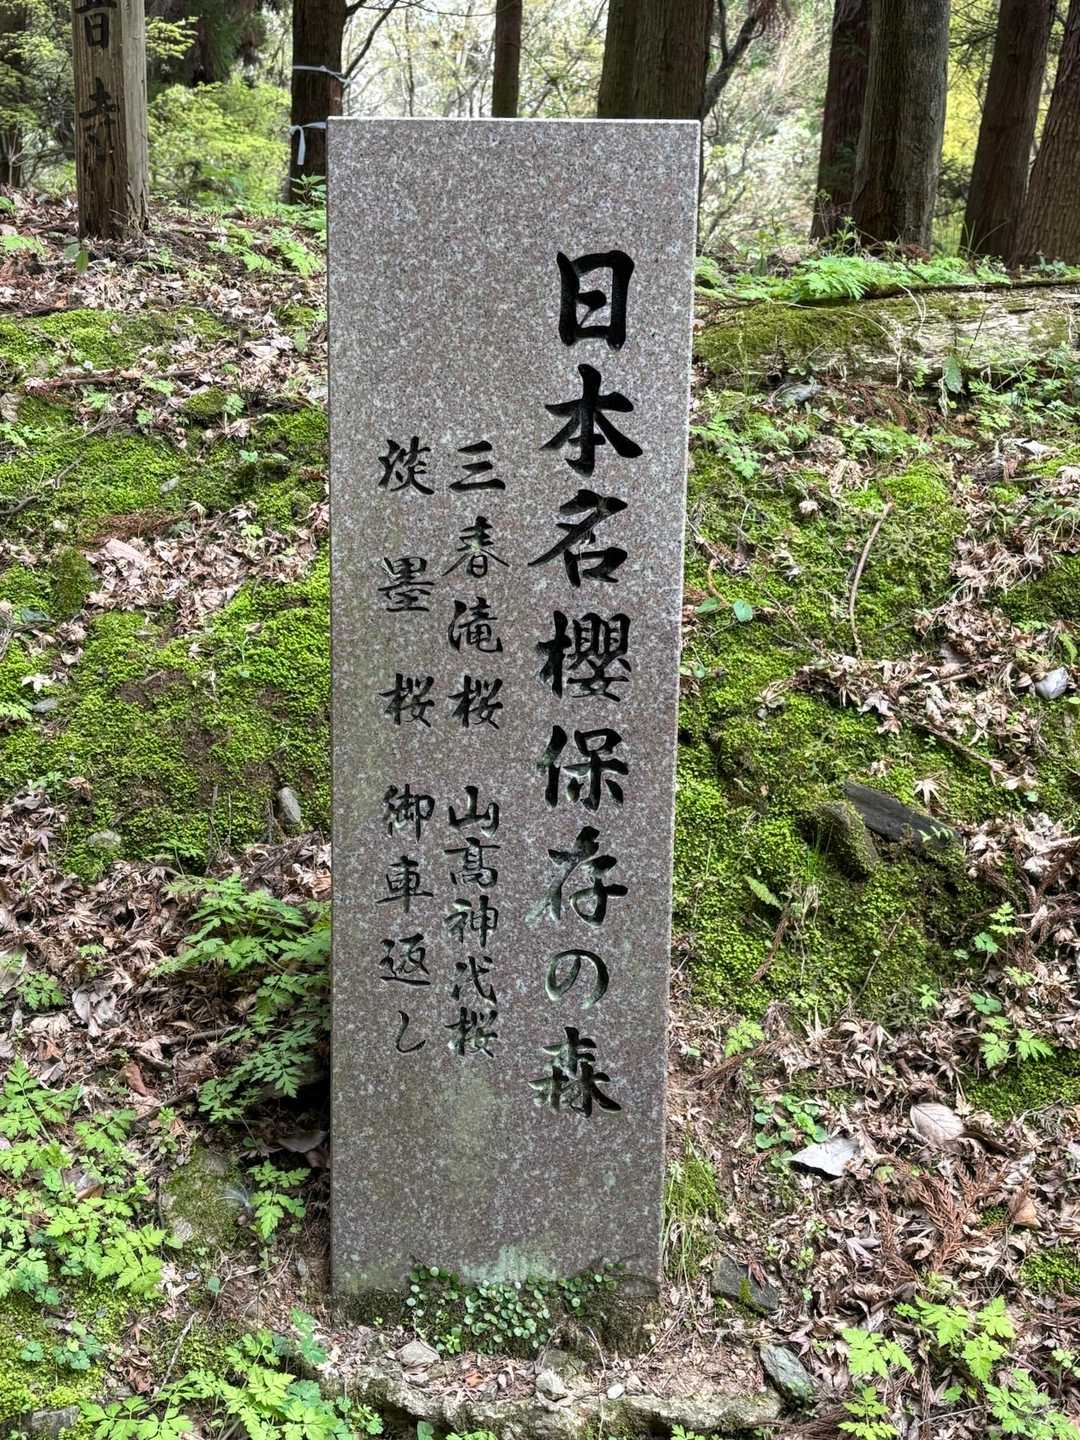 日本名櫻保存の森
三春滝桜 山高神代桜
淡墨桜 御車返し
音寺